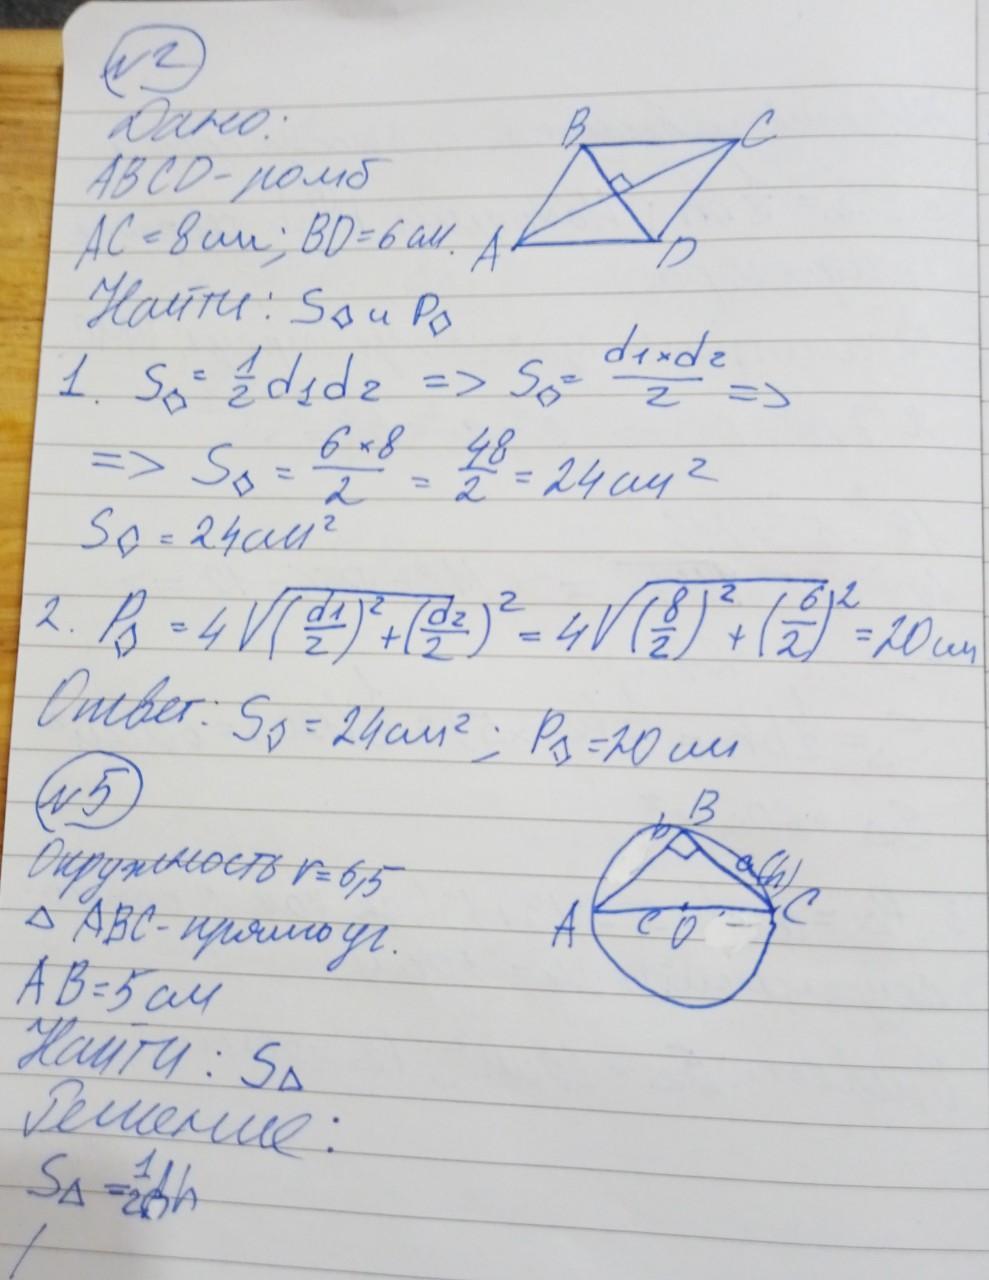 №2
Дано:
ABCD - ромб
AC = 8 см; BD = 6 см.
B C
A D
Найти: S◊ и P◊
1. S◊ = 1/2 d1d2 => S◊ = d1×d2/2 =>
=> S◊ = 6×8/2 = 48/2 = 24 см²
S◊ = 24 см²
2. P◊ = 4√(d1/2)² + (d2/2)² = 4√(8/2)² + (6/2)² = 20 см
Ответ: S◊ = 24 см²; P◊ = 20 см
№5
b B
a(h)
Окружность r = 6,5
A c O C
△ ABC - прямоуг.
AB = 5 см
Найти: S△
Решение:
S△ = 1/2 h